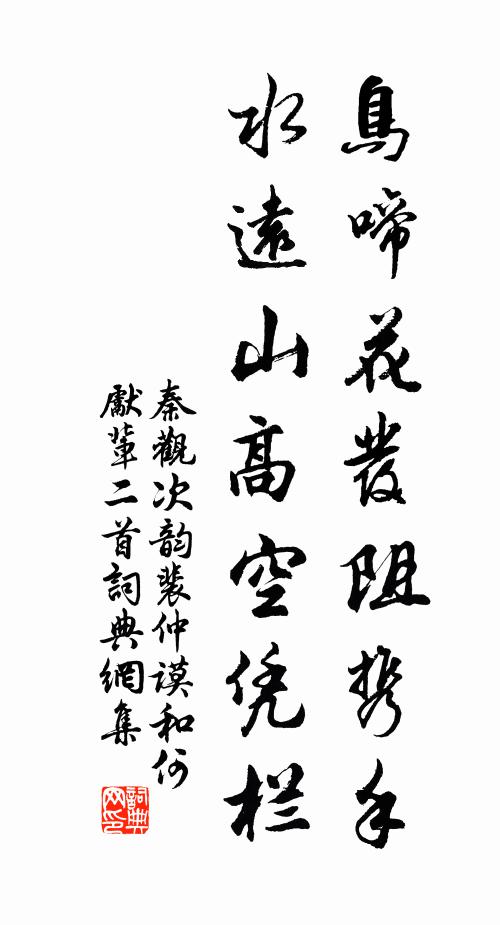 鳥啼花發阻携手
水遠山高空凭栏
秦觀次韵裴仲謨和何
獻輩二首詞典網集
詞典
网印